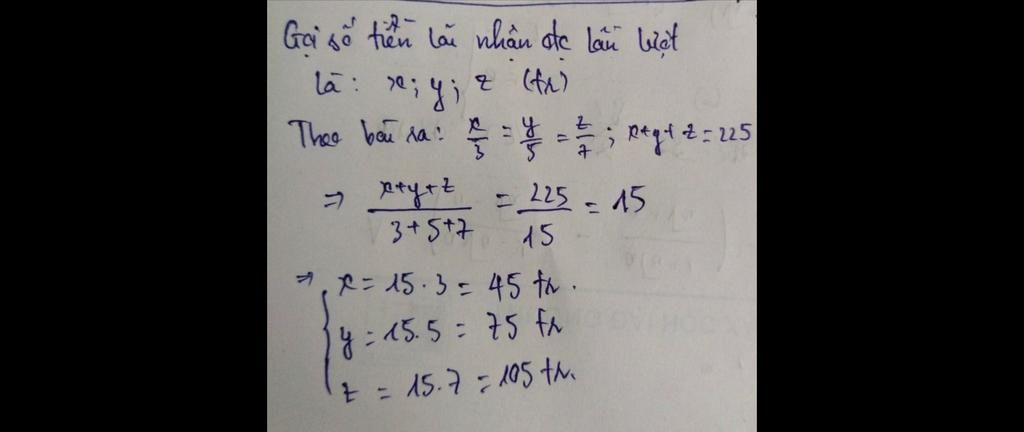 Gọi số tiền lãi nhận đc lần lượt
là: x; y; z (tr)
Theo bài ra: x/3 = y/5 = z/7; x+y+z = 225
⇒ (x+y+z)/(3+5+7) = 225/15 = 15
⇒ { x = 15.3 = 45 tr.
y = 15.5 = 75 tr
z = 15.7 = 105 tr.